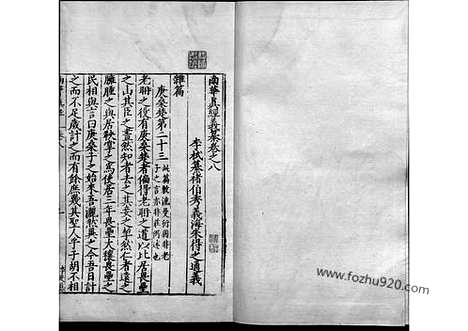 南華真經義纂卷之八
李栻纂褚伯秀義海朱得之通義
雜篇
庚桑楚第二十三
老聃之役有庚桑楚者偏得老聃之道以北居畏壘
之山其臣之畫然知者去之其妾之挈然仁者遠之
擁腫之與居鞅掌之為使居三年畏壘大壤畏壘之
民相與言曰庚桑子之始來吾灑然異之今吾日計
之而不足歲計之而有餘庶幾其聖人乎子胡不相
www.fozhu920.com